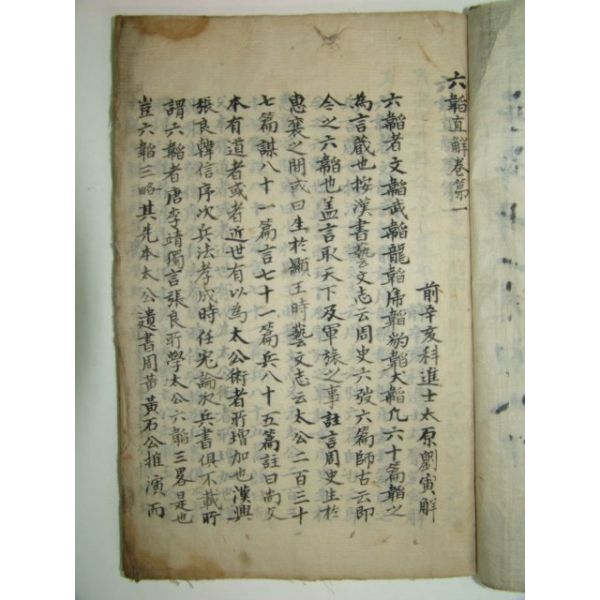 六韜直解卷第一
前辛亥科進士太原劉寅解
六韜者文韜武韜龍韜虎韜豹韜犬韜凡六十篇韜之
為言藏也按漢書藝文志云周史六弢六篇師古云即
今之六韜也盖言取天下及軍旅之事註言周史生於
惠襄之間或曰生於顯王時藝文志云太公二百三十
七篇謀八十一篇言七十一篇兵八十五篇註曰尚父
本有道者或者近世有以為太公術者所增加也漢興
張良韓信序次兵法孝成時任宏論次兵書俱不載所
謂六韜者唐李靖獨言張良所學太公六韜三畧是也
豈六韜三略其先本太公遺書周苗黃石公推演而